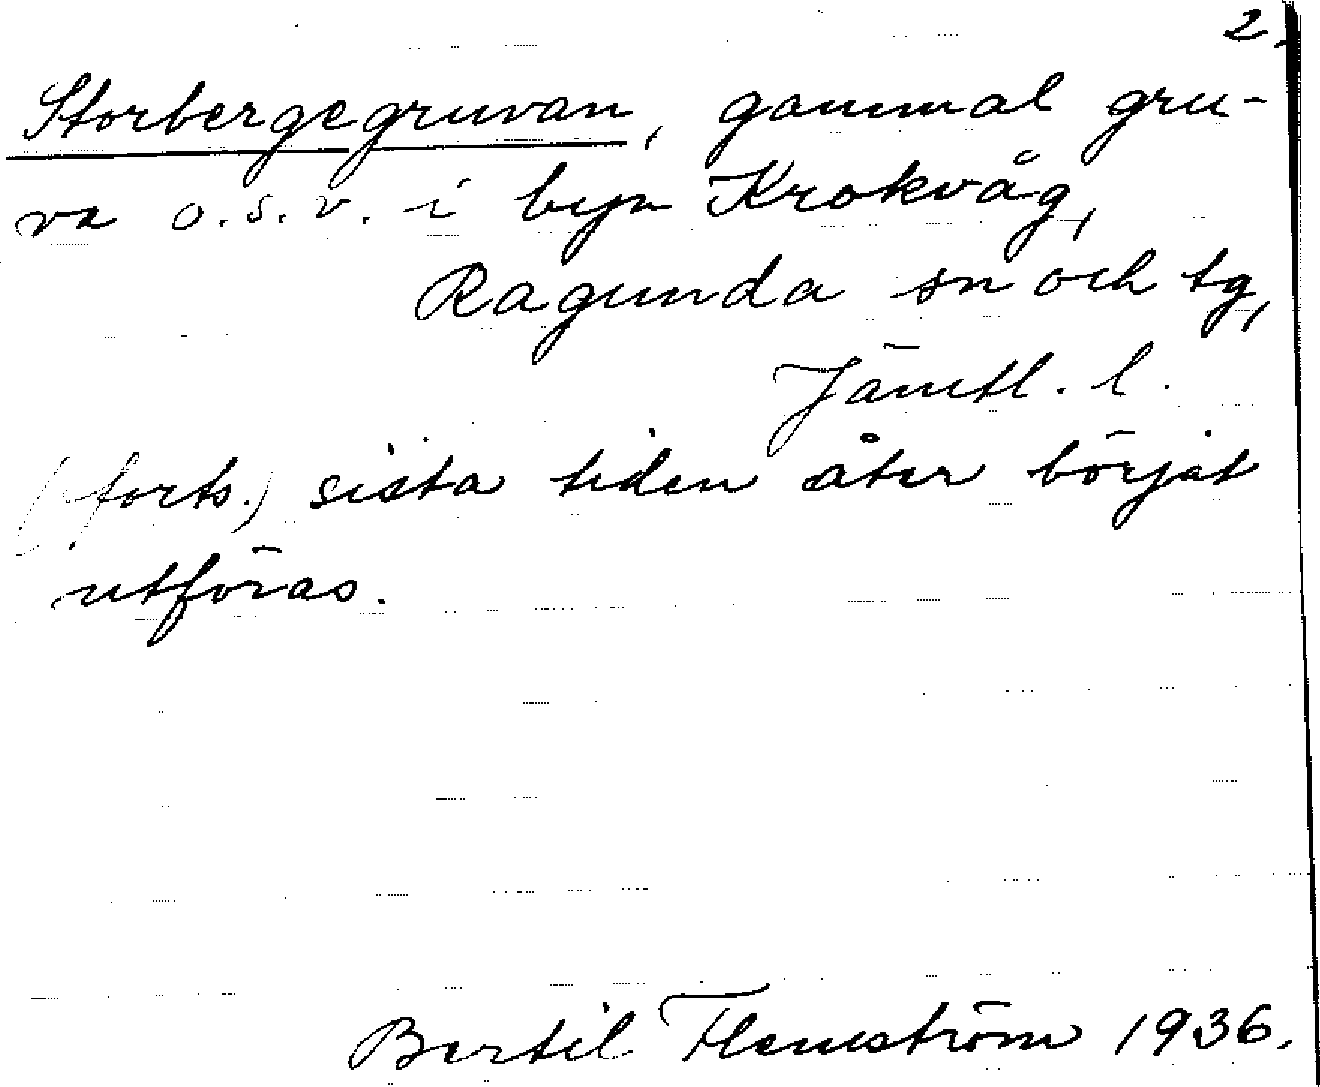 2.
Storbergegruvan, gammal gru-
va o.s.v. i byn Krokvåg,
Ragunda sn och tg,
Jämtl. l.
(forts.) sista tiden åter börjat
utföras.
Bertil Flemström 1936.